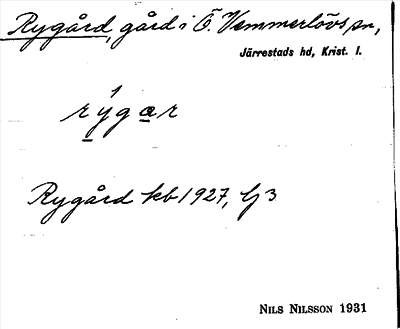 Rygård, gård i Ö. Vemmerlövs sn,
Järrestads hd, Krist. l.
rýgar
Rygård kb 1927, bj 3
NILS NILSSON 1931